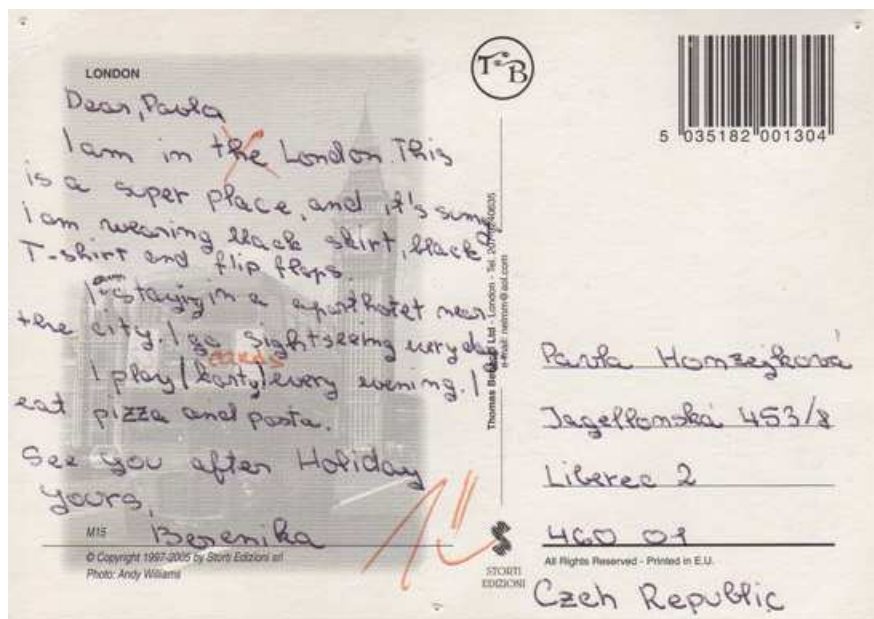 LONDON
Dear, Pavla
I am in the London This
is a super place, and it's sunny
i am wearing black skirt, black
T-shirt and flip flops.
I am staying in a aparthotel near
the city. I go sightseeing every day
cards
I play (karty) every evening. I
eat pizza and pasta.
See you after Holiday
yours,
Berenika
M15
© Copyright 1997-2005 by Storti Edizioni srl
Photo: Andy Williams
1"
TB
Thomas Ltd - London - Tel.
STORTI
EDIZIONI
5 035182 001304
Pavla Honzejková
Jagellonská 453/8
Liberec 2
460 01
All Rights Reserved - Printed in E.U.
Czech Republic